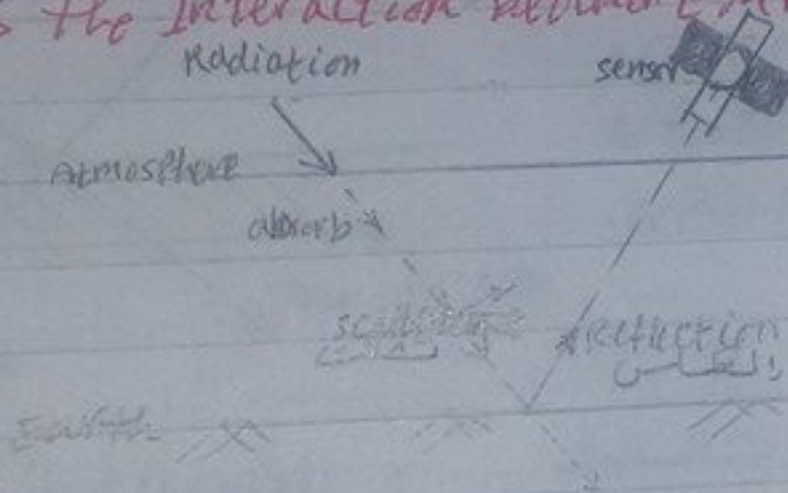 the Interaction between
Radiation
sensor
Atmosphere
absorb
scattering
Reflection
انعكاس
Earth